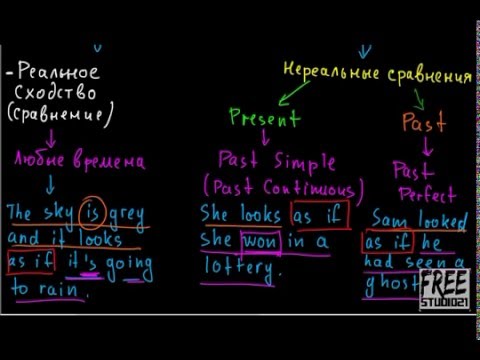 - Реальное
сходство
(сравнение)
Любые времена
The sky is grey
and it looks
as if it's going
to rain.
Нереальные сравнения
Present
Past Simple
(Past Continuous)
She looks as if
she won in a
lottery.
Past
Past
Perfect
Sam looked
as if he
had seen a
ghost
FREE
STUDIO21